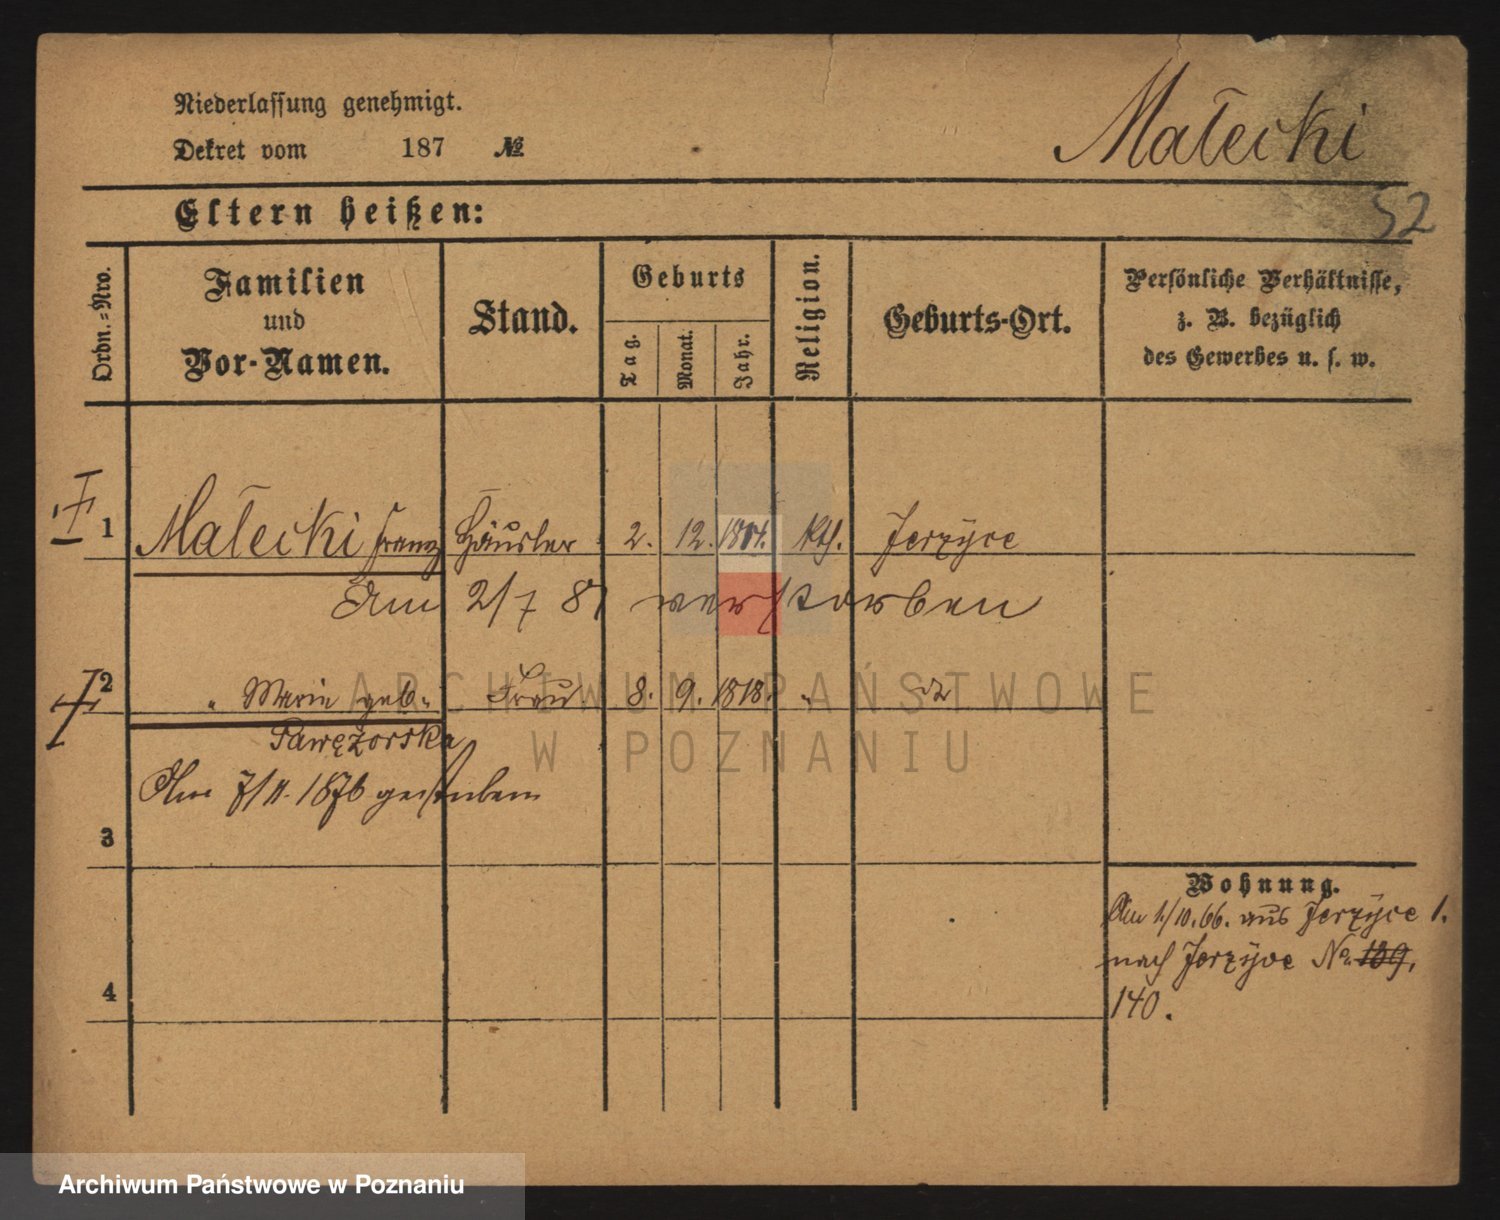 Niederlassung genehmigt.
Dekret vom 187 №
Małecki
52
Eltern heißen:
Ordn.-Nro.
Familien
und
Vor-Namen.
Stand.
Geburts
Tag.
Monat.
Jahr.
Religion.
Geburts-Ort.
Persönliche Verhältnisse,
z. B. bezüglich
des Gewerbes u. s. w.
1 Małecki Franz Häusler 2. 12. Kth. Jerzyce
Am 2/7 81 verstorben
2 " Marie geb. Frau 8. 9. 1818. " do
Pawęzorska
Am 7/11. 1876 gestorben
3
Wohnung.
Am 1./10.66. aus Jerzyce 1.
nach Jerzyce No 139,
140.
4
ARCHIWUM PAŃSTWOWE
W POZNANIU
Archiwum Państwowe w Poznaniu